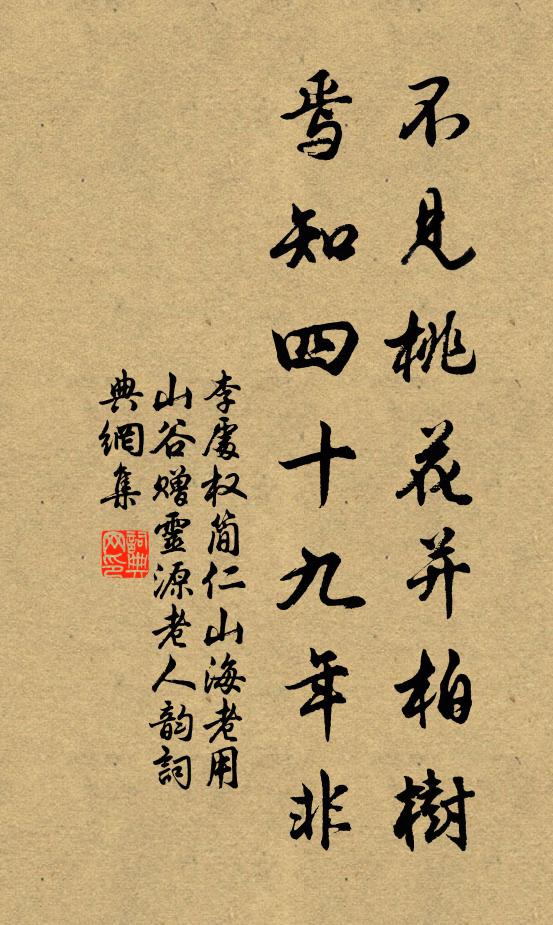 不见桃花并柏樹
焉知四十九年非
李處权简仁山海老用
山谷赠靈源老人韵詞
典網集
詞典
网印